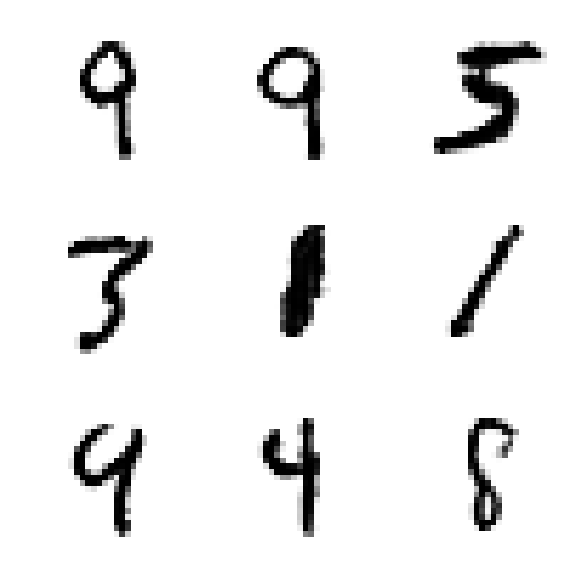 9 9 5
3 1 1
9 4 8